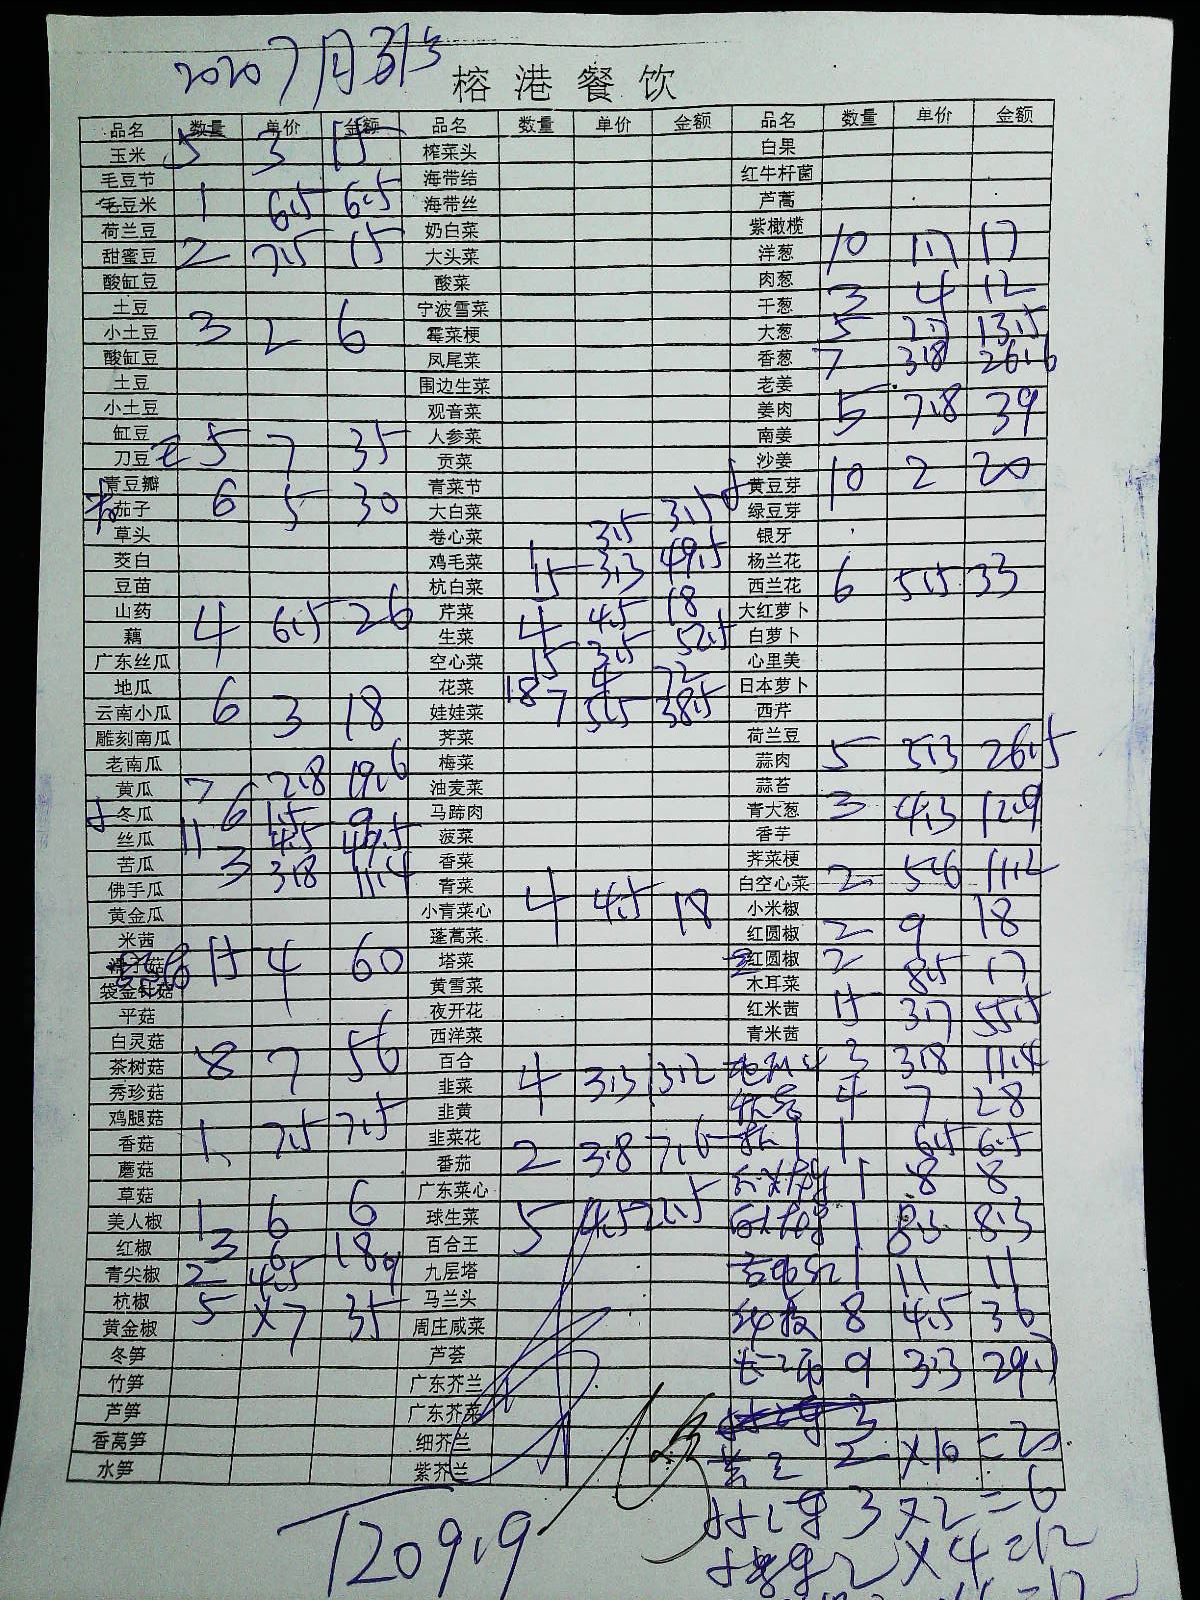 2020 7月31号
榕港餐饮
品名 数量 单价 金额 品名 数量 单价 金额 品名 数量 单价 金额
玉米 5 3 15 榨菜头 白果
毛豆节 海带结 红牛杆菌
毛豆米 1 6.5 6.5 海带丝 芦蒿
荷兰豆 奶白菜 紫橄榄
甜蜜豆 2 7.5 15 大头菜 洋葱 10 1.7 17
酸缸豆 酸菜 肉葱
土豆 宁波雪菜 干葱 3 4 12
小土豆 3 2 6 霉菜梗 大葱 5 2.7 13.5
酸缸豆 凤尾菜 香葱 7 3.8 26.6
土豆 围边生菜 老姜
小土豆 观音菜 姜肉 5 7.8 39
缸豆 人参菜 南姜
刀豆 5 7 35 贡菜 沙姜
青豆瓣 青菜节 黄豆芽 10 2 20
茄子 6 5 30 大白菜 绿豆芽
草头 卷心菜 1 3.5 3.5 银牙
茭白 鸡毛菜 15 3.3 49.5 杨兰花
豆苗 杭白菜 西兰花 6 5.5 33
山药 芹菜 4 4.5 18 大红萝卜
藕 4 6.5 26 生菜 15 3.5 52.5 白萝卜
广东丝瓜 空心菜 心里美
地瓜 花菜 18 4 72 日本萝卜
云南小瓜 6 3 18 娃娃菜 7 5.5 38.5 西芹
雕刻南瓜 荠菜 荷兰豆
老南瓜 梅菜 蒜肉 5 5.3 26.5
黄瓜 7 2.8 19.6 油麦菜 蒜苔
冬瓜 6 1.5 9 马蹄肉 青大葱 3 4.3 12.9
丝瓜 11 4.5 49.5 菠菜 香芋
苦瓜 3 3.8 11.4 香菜 荠菜梗
佛手瓜 青菜 白空心菜 2 5.6 11.2
黄金瓜 小青菜心 4 4.5 18 小米椒
米茜 蓬蒿菜 红圆椒 2 9 18
15 4 60 塔菜 红圆椒 2 8.5 17
袋金针菇 黄雪菜 木耳菜
平菇 夜开花 红米茜 15 3.7 55.5
白灵菇 西洋菜 青米茜
茶树菇 8 7 56 百合 3 3.8 11.4
秀珍菇 韭菜 4 3.3 13.2 4 7 28
鸡腿菇 韭黄
香菇 1 7.5 7.5 韭菜花 1 6.5 6.5
蘑菇 番茄 2 3.8 7.6 1 8 8
草菇 广东菜心
美人椒 1 6 6 球生菜 5 4.5 22.5 1 8.3 8.3
红椒 3 6 18 百合王
青尖椒 2 4.5 9 九层塔 1 11 11
杭椒 5 ×7 35 马兰头 8 4.5 36
黄金椒 周庄咸菜
冬笋 芦荟 9 3.3 29.7
竹笋 广东芥兰
芦笋 广东芥菜 3
香莴笋 细芥兰 2 ×10 =20
水笋 紫芥兰
3×2=6
1209.9
2×4=12